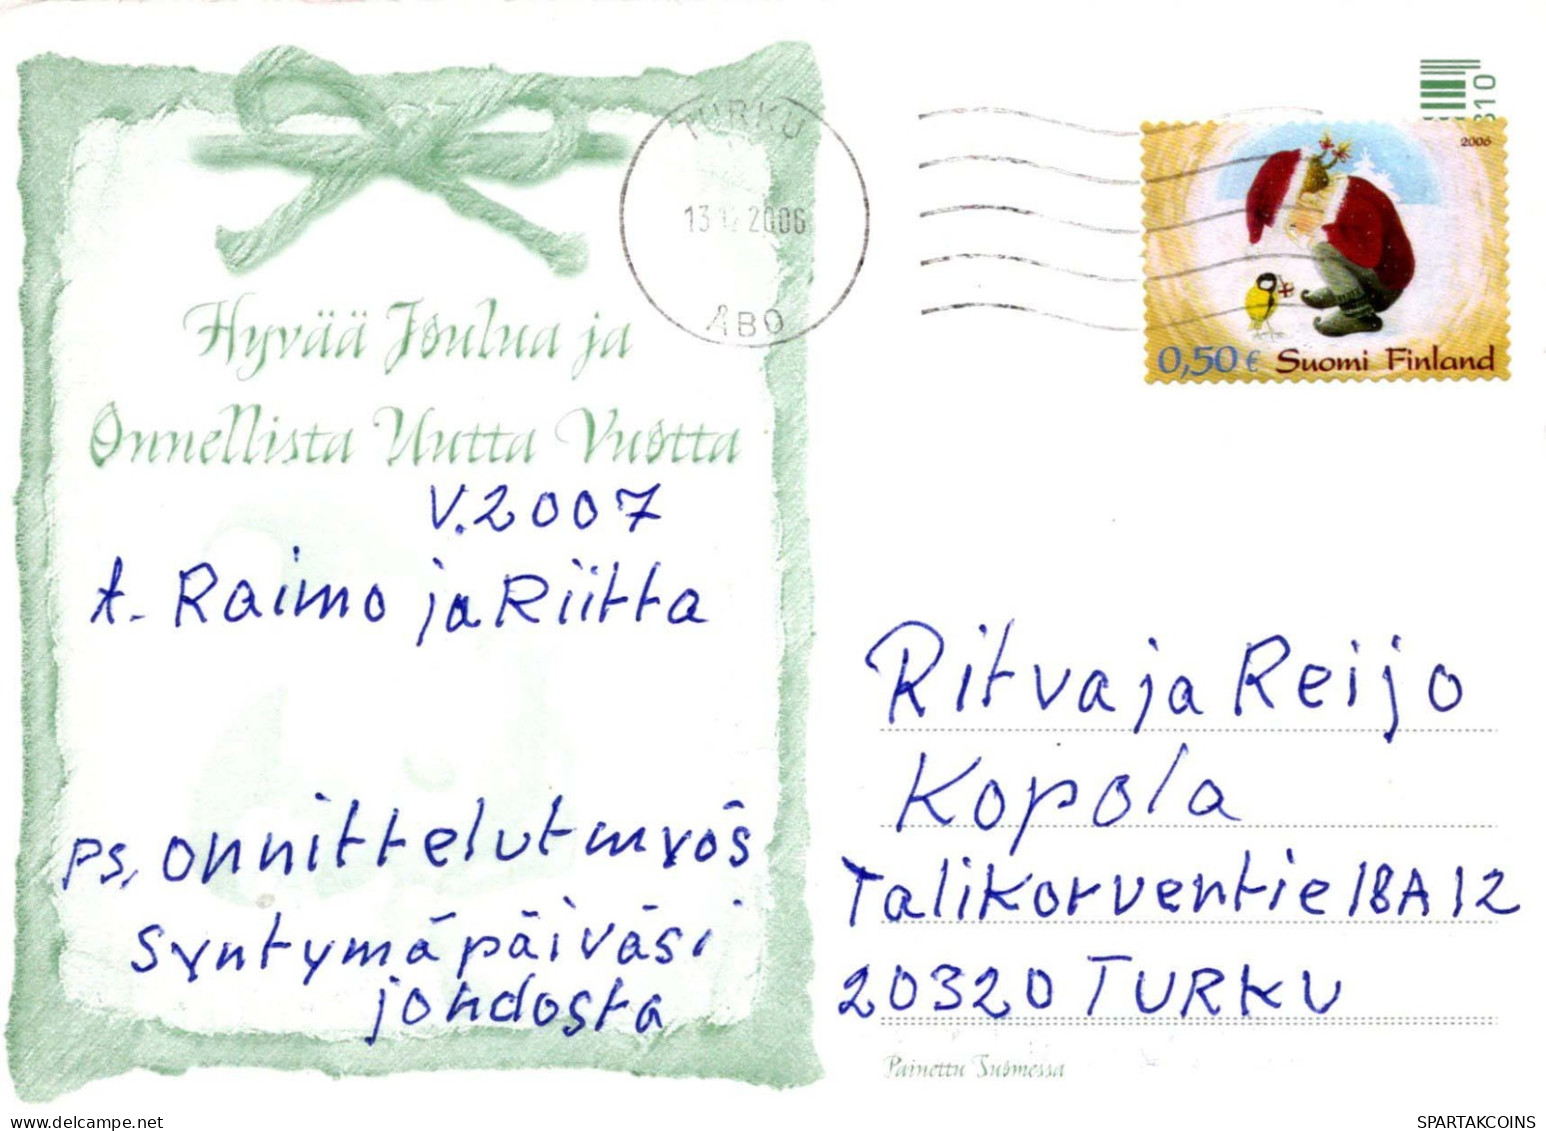 TURKU
2006
ÅBO
310
2006
0,50 € Suomi Finland
Hyvää Joulua ja
Onnellista Uutta Vuotta
V. 2007
t. Raimo ja Riitta
PS. onnittelut myös
Syntymäpäiväsi
johdosta
Ritva ja Reijo
Kopola
Talikorventie 18 A 12
20320 TURKU
Painettu Suomessa
SPARTAKCOINS